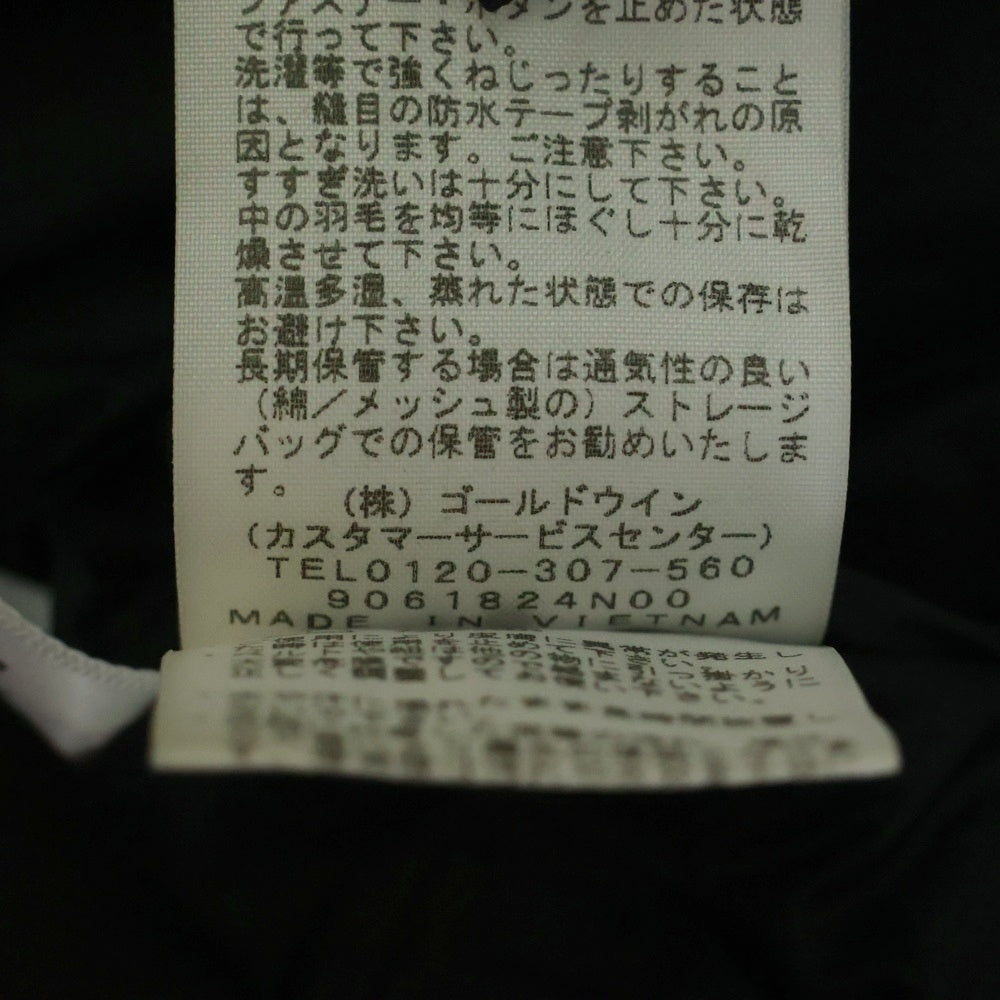 ファスナー・ボタンを止めた状態
で行って下さい。
洗濯等で強くねじったりすること
は、縫目の防水テープ剥がれの原
因となります。ご注意下さい。
すすぎ洗いは十分にして下さい。
中の羽毛を均等にほぐし十分に乾
燥させて下さい。
高温多湿、蒸れた状態での保存は
お避け下さい。
長期保管する場合は通気性の良い
(綿/メッシュ製の)ストレージ
バッグでの保管をお勧めいたしま
す。
(株)ゴールドウイン
(カスタマーサービスセンター)
TEL0120-307-560
9061824N00
MADE IN VIETNAM